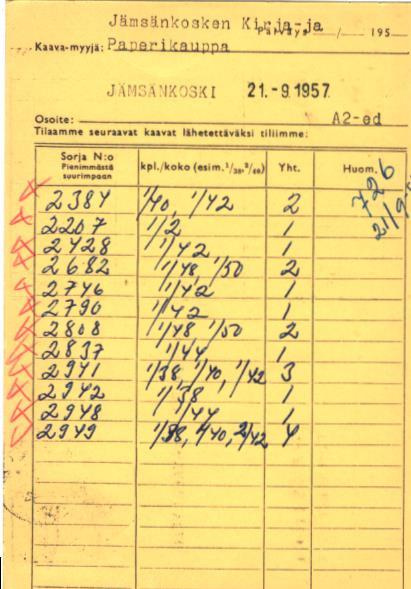 Jämsänkosken Kirja-ja
Päiväys / 195
Kaava-myyjä: Paperikauppa
JÄMSÄNKOSKI 21.-9.1957
Osoite: A2-ed
Tilaamme seuraavat kaavat lähetettäväksi tiliimme:
Sorja N:o Pienimmästä suurimpaan kpl./koko (esim. 1/38, 2/40) Yht. Huom.
726
21/9
2384 1/40, 1/42 2
2207 1/2 1
2428 1/42 1
2682 1/48, 1/50 2
2746 1/42 1
2790 1/42 1
2808 1/48, 1/50 2
2837 1/44 1
2941 1/38, 1/40, 1/42 3
2942 1/38 1
2948 1/44 1
2949 1/38, 1/40, 2/42 4